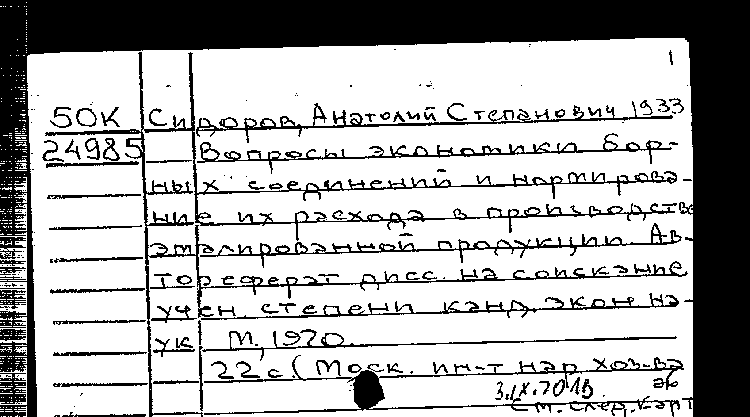 1
50К Сидоров, Анатолий Степанович, 1933
24985 Вопросы экономики бор-
ных соединений и нормирова-
ние их расхода в производстве
эмалированной продукции. Ав-
тореферат дисс. на соискание
учен. степени канд. экон. на-
ук М., 1970.
22 с. (Моск. ин-т нар. хоз-ва
см. след. карт